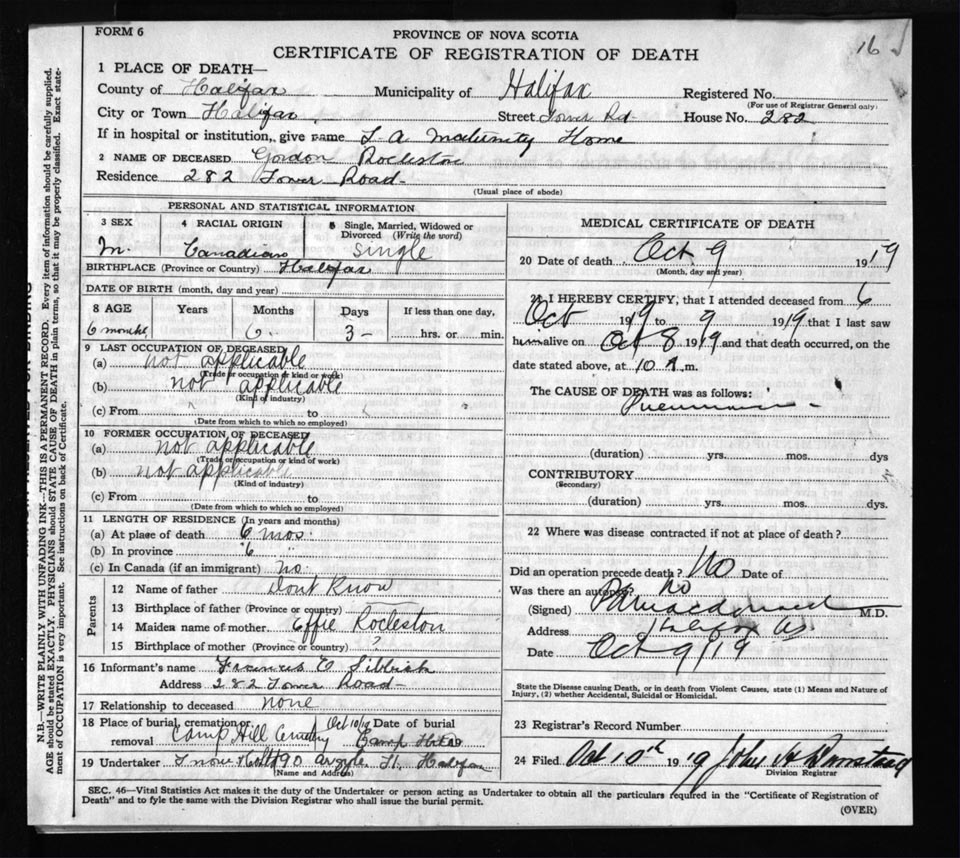 FORM 6
PROVINCE OF NOVA SCOTIA
16
CERTIFICATE OF REGISTRATION OF DEATH
1 PLACE OF DEATH—
County of Halifax Municipality of Halifax Registered No.
(For use of Registrar General only)
City or Town Halifax Street Tower Rd House No. 282
If in hospital or institution, give name S-A Maternity Home
2 NAME OF DECEASED Gordon Rocleston
Residence 282 Tower Road
(Usual place of abode)
PERSONAL AND STATISTICAL INFORMATION
3 SEX 4 RACIAL ORIGIN 5 Single, Married, Widowed or Divorced (Write the word)
M Canadian Single
BIRTHPLACE (Province or Country) Halifax
DATE OF BIRTH (month, day and year)
8 AGE Years Months Days If less than one day,
6 months 6 3 hrs. or min.
9 LAST OCCUPATION OF DECEASED
(a) not applicable
(Trade or occupation or kind of work)
(b) not applicable
(Kind of industry)
(c) From to
(Date from which to which so employed)
10 FORMER OCCUPATION OF DECEASED
(a) not applicable
(Trade or occupation or kind of work)
(b) not applicable
(Kind of industry)
(c) From to
(Date from which to which so employed)
11 LENGTH OF RESIDENCE (In years and months)
(a) At place of death 6 mos.
(b) In province 6
(c) In Canada (if an immigrant) no.
Parents
12 Name of father Dont Know
13 Birthplace of father (Province or country)
14 Maiden name of mother Effie Rocleston
15 Birthplace of mother (Province or country) ?
16 Informant's name
Address 282 Tower Road
17 Relationship to deceased none
18 Place of burial, cremation or removal Camp Hill Cemetery Oct 10/19 Date of burial Camp Hill
19 Undertaker Snow 90 Argyle St. Halifax
(Name and Address)
MEDICAL CERTIFICATE OF DEATH
20 Date of death Oct 9 1919
(Month, day and year)
21 I HEREBY CERTIFY, that I attended deceased from 6
Oct 1919 to 9 1919 that I last saw
him alive on Oct 8 1919 and that death occurred, on the
date stated above, at 10 A.m.
The CAUSE OF DEATH was as follows:
Pneumonia
(duration) yrs. mos. dys
CONTRIBUTORY
(Secondary)
(duration) yrs. mos. dys.
22 Where was disease contracted if not at place of death?
Did an operation precede death? No Date of
Was there an autopsy? No
(Signed) Macdonald M.D.
Address Halifax NS
Date Oct 9/19
State the Disease causing Death, or in death from Violent Causes, state (1) Means and Nature of
Injury, (2) whether Accidental, Suicidal or Homicidal.
23 Registrar's Record Number
24 Filed Oct 10th 1919 John A
Division Registrar
SEC. 46—Vital Statistics Act makes it the duty of the Undertaker or person acting as Undertaker to obtain all the particulars required in the "Certificate of Registration of
Death" and to fyle the same with the Division Registrar who shall issue the burial permit.
(OVER)
N.B.—WRITE PLAINLY WITH UNFADING INK—THIS IS A PERMANENT RECORD. Every item of information should be carefully supplied.
AGE should be stated EXACTLY. PHYSICIANS should STATE CAUSE OF DEATH in plain terms, so that it may be properly classified. Exact state-
ment of OCCUPATION is very important. See instructions on back of Certificate.